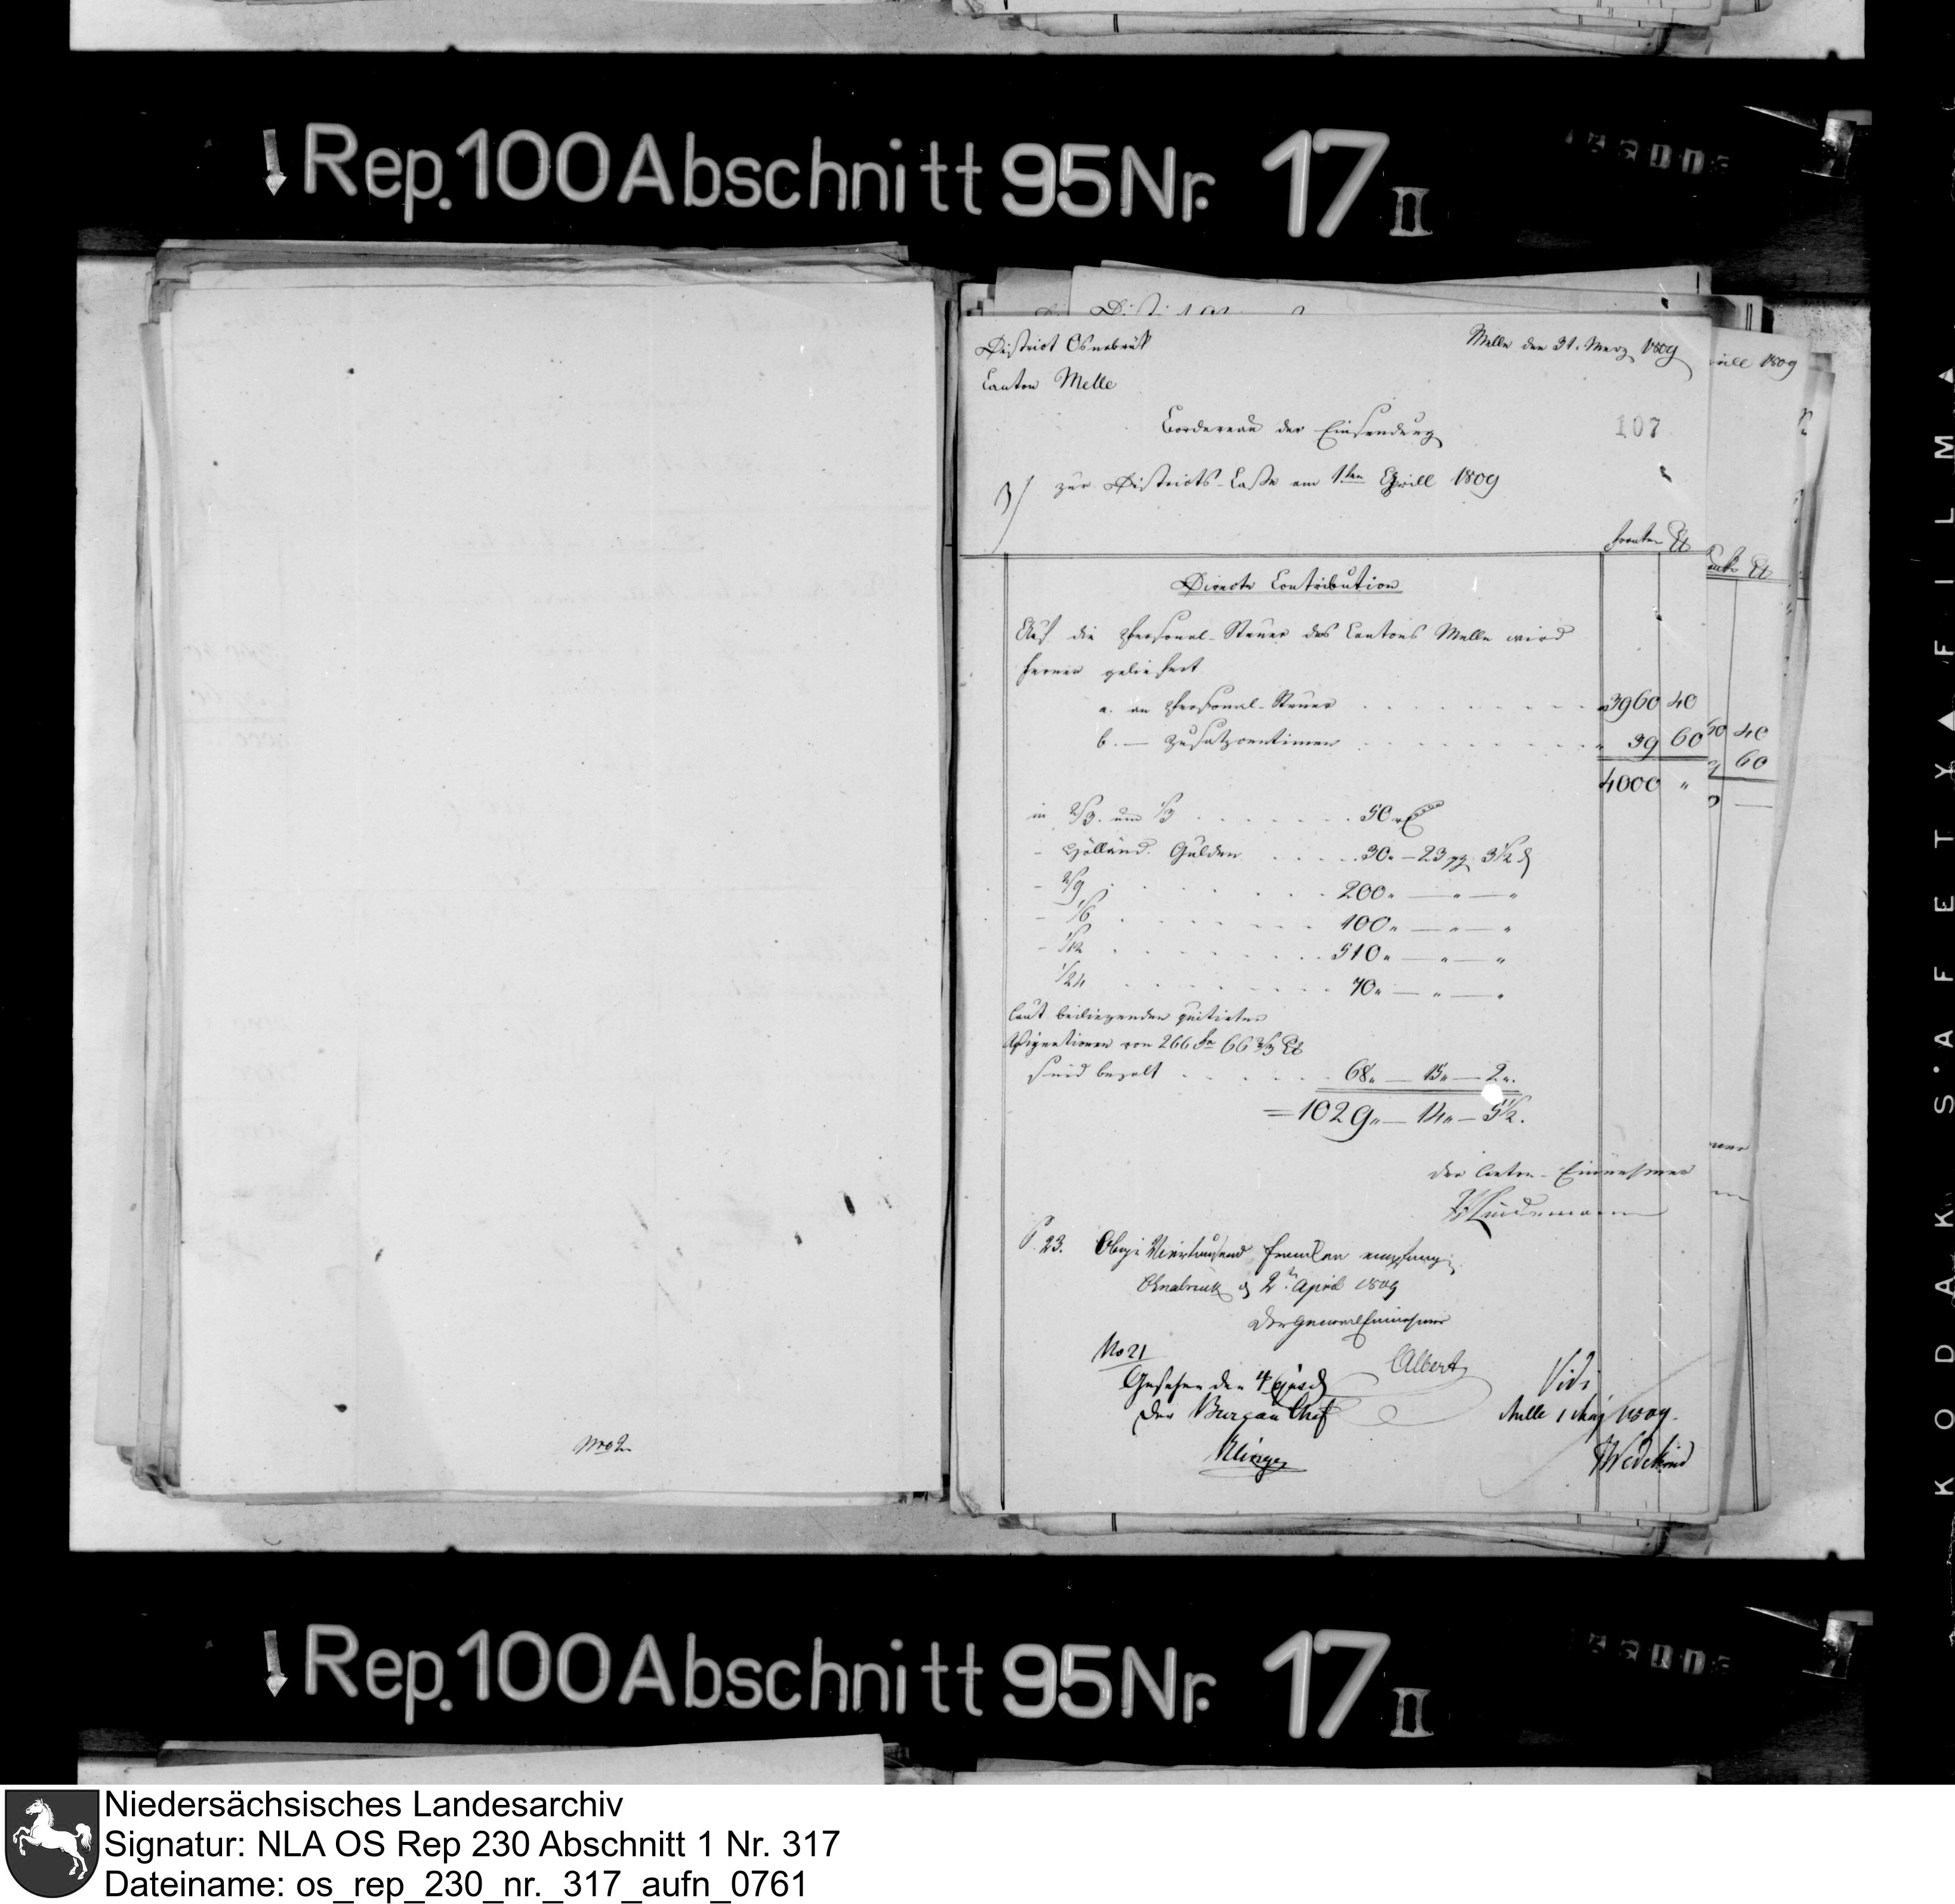 Rep. 100 Abschnitt 95 Nr. 17 II
District Osnabrük
Melle den 31. Merz 1809
Canton Melle
Bordereau der Einsendung
107
3/ zur Districts-Casse am 1ten Aprill 1809
Franken Ct
Directe Contribution
Auf die Personal-Steuer des Cantons Melle wird
ferner geliefert
a. an Personal-Steuer 3960 40
b. — Zusatzcentimen 39 60
4000 "
in 2/3. und 1/3 50
- Holländ. Gulden 30 " — 23 gg 3 1/2 d
- 2/9 200 " — " — "
- 1/6 100 " — " — "
- 1/12 510 " — " — "
1/24 70 " — " — "
laut beiliegenden quitirten
Assignationen von 266 Fr 66 2/3 Ct
sind bezalt 68 " — 15 " — 2 ".
= 1029 " — 14 " — 5 1/2.
der Canton-Einnehmer
Lindemann
P. 23. Obige Viertausend Franken empfang
Osnabrück d 2t. April 1809
Der General Einnehmer
Albert
No 21
Gesehen den
Der Bureau Chef
Vidi
Melle 1 May 1809.
Wedekind
Nro 2
aprill 1809
Ct
40
60
Rep. 100 Abschnitt 95 Nr. 17 II
KODAK SAFETY FILM
Niedersächsisches Landesarchiv
Signatur: NLA OS Rep 230 Abschnitt 1 Nr. 317
Dateiname: os_rep_230_nr._317_aufn_0761